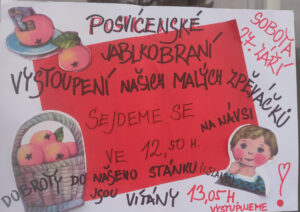 POSVÍCENSKÉ
JABLKOBRANÍ
SOBOTA
27. ZÁŘÍ
VYSTOUPENÍ NAŠICH MALÝCH ZPĚVÁČKŮ
SEJDEME SE
NA NÁVSI
VE 12,50 H.
DOBROTY DO NAŠEHO STÁNKU
JSOU VÍTÁNY
13,05 H.
VYSTUPUJEME
!